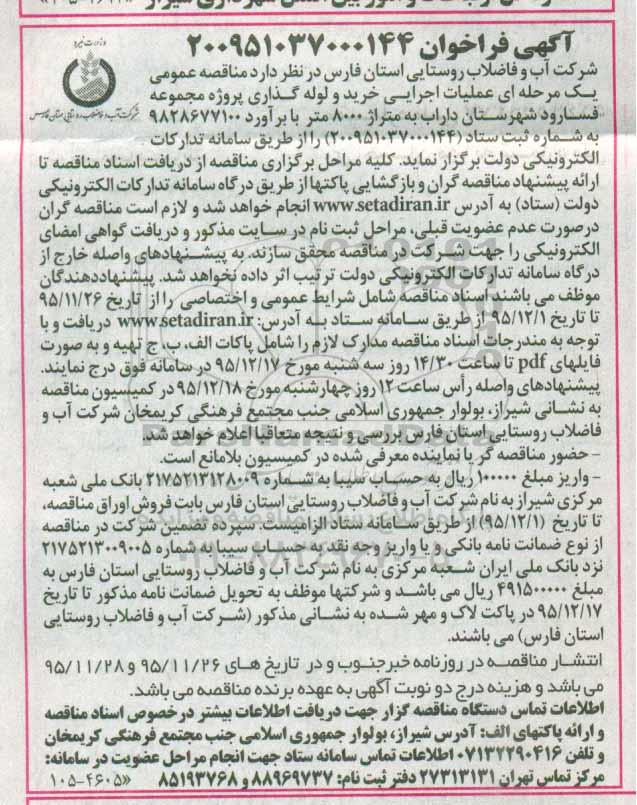 آگهی فراخوان ۲۰۰۹۵۱۰۳۷۰۰۰۱۴۴
وزارت نیرو
شرکت آب و فاضلاب روستایی استان فارس
شرکت آب و فاضلاب روستایی استان فارس در نظر دارد مناقصه عمومی
یک مرحله ای عملیات اجرایی خرید و لوله گذاری پروژه مجموعه
فسارود شهرستان داراب به متراژ ۸۰۰۰ متر با برآورد ۹۸۲۸۶۷۷۱۰۰
به شماره ثبت ستاد (۲۰۰۹۵۱۰۳۷۰۰۰۱۴۴) را از طریق سامانه تدارکات
الکترونیکی دولت برگزار نماید. کلیه مراحل برگزاری مناقصه از دریافت اسناد مناقصه تا
ارائه پیشنهاد مناقصه گران و بازگشایی پاکتها از طریق درگاه سامانه تدارکات الکترونیکی
دولت (ستاد) به آدرس www.setadiran.ir انجام خواهد شد و لازم است مناقصه گران
درصورت عدم عضویت قبلی، مراحل ثبت نام در سایت مذکور و دریافت گواهی امضای
الکترونیکی را جهت شرکت در مناقصه محقق سازند. به پیشنهادهای واصله خارج از
درگاه سامانه تدارکات الکترونیکی دولت ترتیب اثر داده نخواهد شد. پیشنهاددهندگان
موظف می باشند اسناد مناقصه شامل شرایط عمومی و اختصاصی را از تاریخ ۹۵/۱۱/۲۶
تا تاریخ ۹۵/۱۲/۱ از طریق سامانه ستاد به آدرس: www.setadiran.ir دریافت و با
توجه به مندرجات اسناد مناقصه مدارک لازم را شامل پاکات الف، ب، ج تهیه و به صورت
فایلهای pdf تا ساعت ۱۴/۳۰ روز سه شنبه مورخ ۹۵/۱۲/۱۷ در سامانه فوق درج نمایند.
پیشنهادهای واصله رأس ساعت ۱۲ روز چهارشنبه مورخ ۹۵/۱۲/۱۸ در کمیسیون مناقصه
به نشانی شیراز، بولوار جمهوری اسلامی جنب مجتمع فرهنگی کریمخان شرکت آب و
فاضلاب روستایی استان فارس بررسی و نتیجه متعاقبا اعلام خواهد شد.
- حضور مناقصه گر یا نماینده معرفی شده در کمیسیون بلامانع است.
- واریز مبلغ ۱۰۰۰۰۰ ریال به حساب سیبا به شماره ۲۱۷۵۲۱۳۱۲۸۰۰۹ بانک ملی شعبه
مرکزی شیراز به نام شرکت آب و فاضلاب روستایی استان فارس بابت فروش اوراق مناقصه،
تا تاریخ (۹۵/۱۲/۱) از طریق سامانه ستاد الزامیست. سپرده تضمین شرکت در مناقصه
از نوع ضمانت نامه بانکی و یا واریز وجه نقد به حساب سیبا به شماره ۲۱۷۵۲۱۳۰۰۹۰۰۵
نزد بانک ملی ایران شعبه مرکزی به نام شرکت آب و فاضلاب روستایی استان فارس به
مبلغ ۴۹۱۵۰۰۰۰۰ ریال می باشد و شرکتها موظف به تحویل ضمانت نامه مذکور تا تاریخ
۹۵/۱۲/۱۷ در پاکت لاک و مهر شده به نشانی مذکور (شرکت آب و فاضلاب روستایی
استان فارس) می باشند.
انتشار مناقصه در روزنامه خبرجنوب و در تاریخ های ۹۵/۱۱/۲۶ و ۹۵/۱۱/۲۸
می باشد و هزینه درج دو نوبت آگهی به عهده برنده مناقصه می باشد.
اطلاعات تماس دستگاه مناقصه گزار جهت دریافت اطلاعات بیشتر درخصوص اسناد مناقصه
و ارائه پاکتهای الف: آدرس شیراز، بولوار جمهوری اسلامی جنب مجتمع فرهنگی کریمخان
و تلفن ۰۷۱۳۲۲۹۰۴۱۶ اطلاعات تماس سامانه ستاد جهت انجام مراحل عضویت در سامانه:
مرکز تماس تهران ۲۷۳۱۳۱۳۱ دفتر ثبت نام: ۸۸۹۶۹۷۳۷ و ۸۵۱۹۳۷۶۸ «۱۰۵-۴۶۰۵